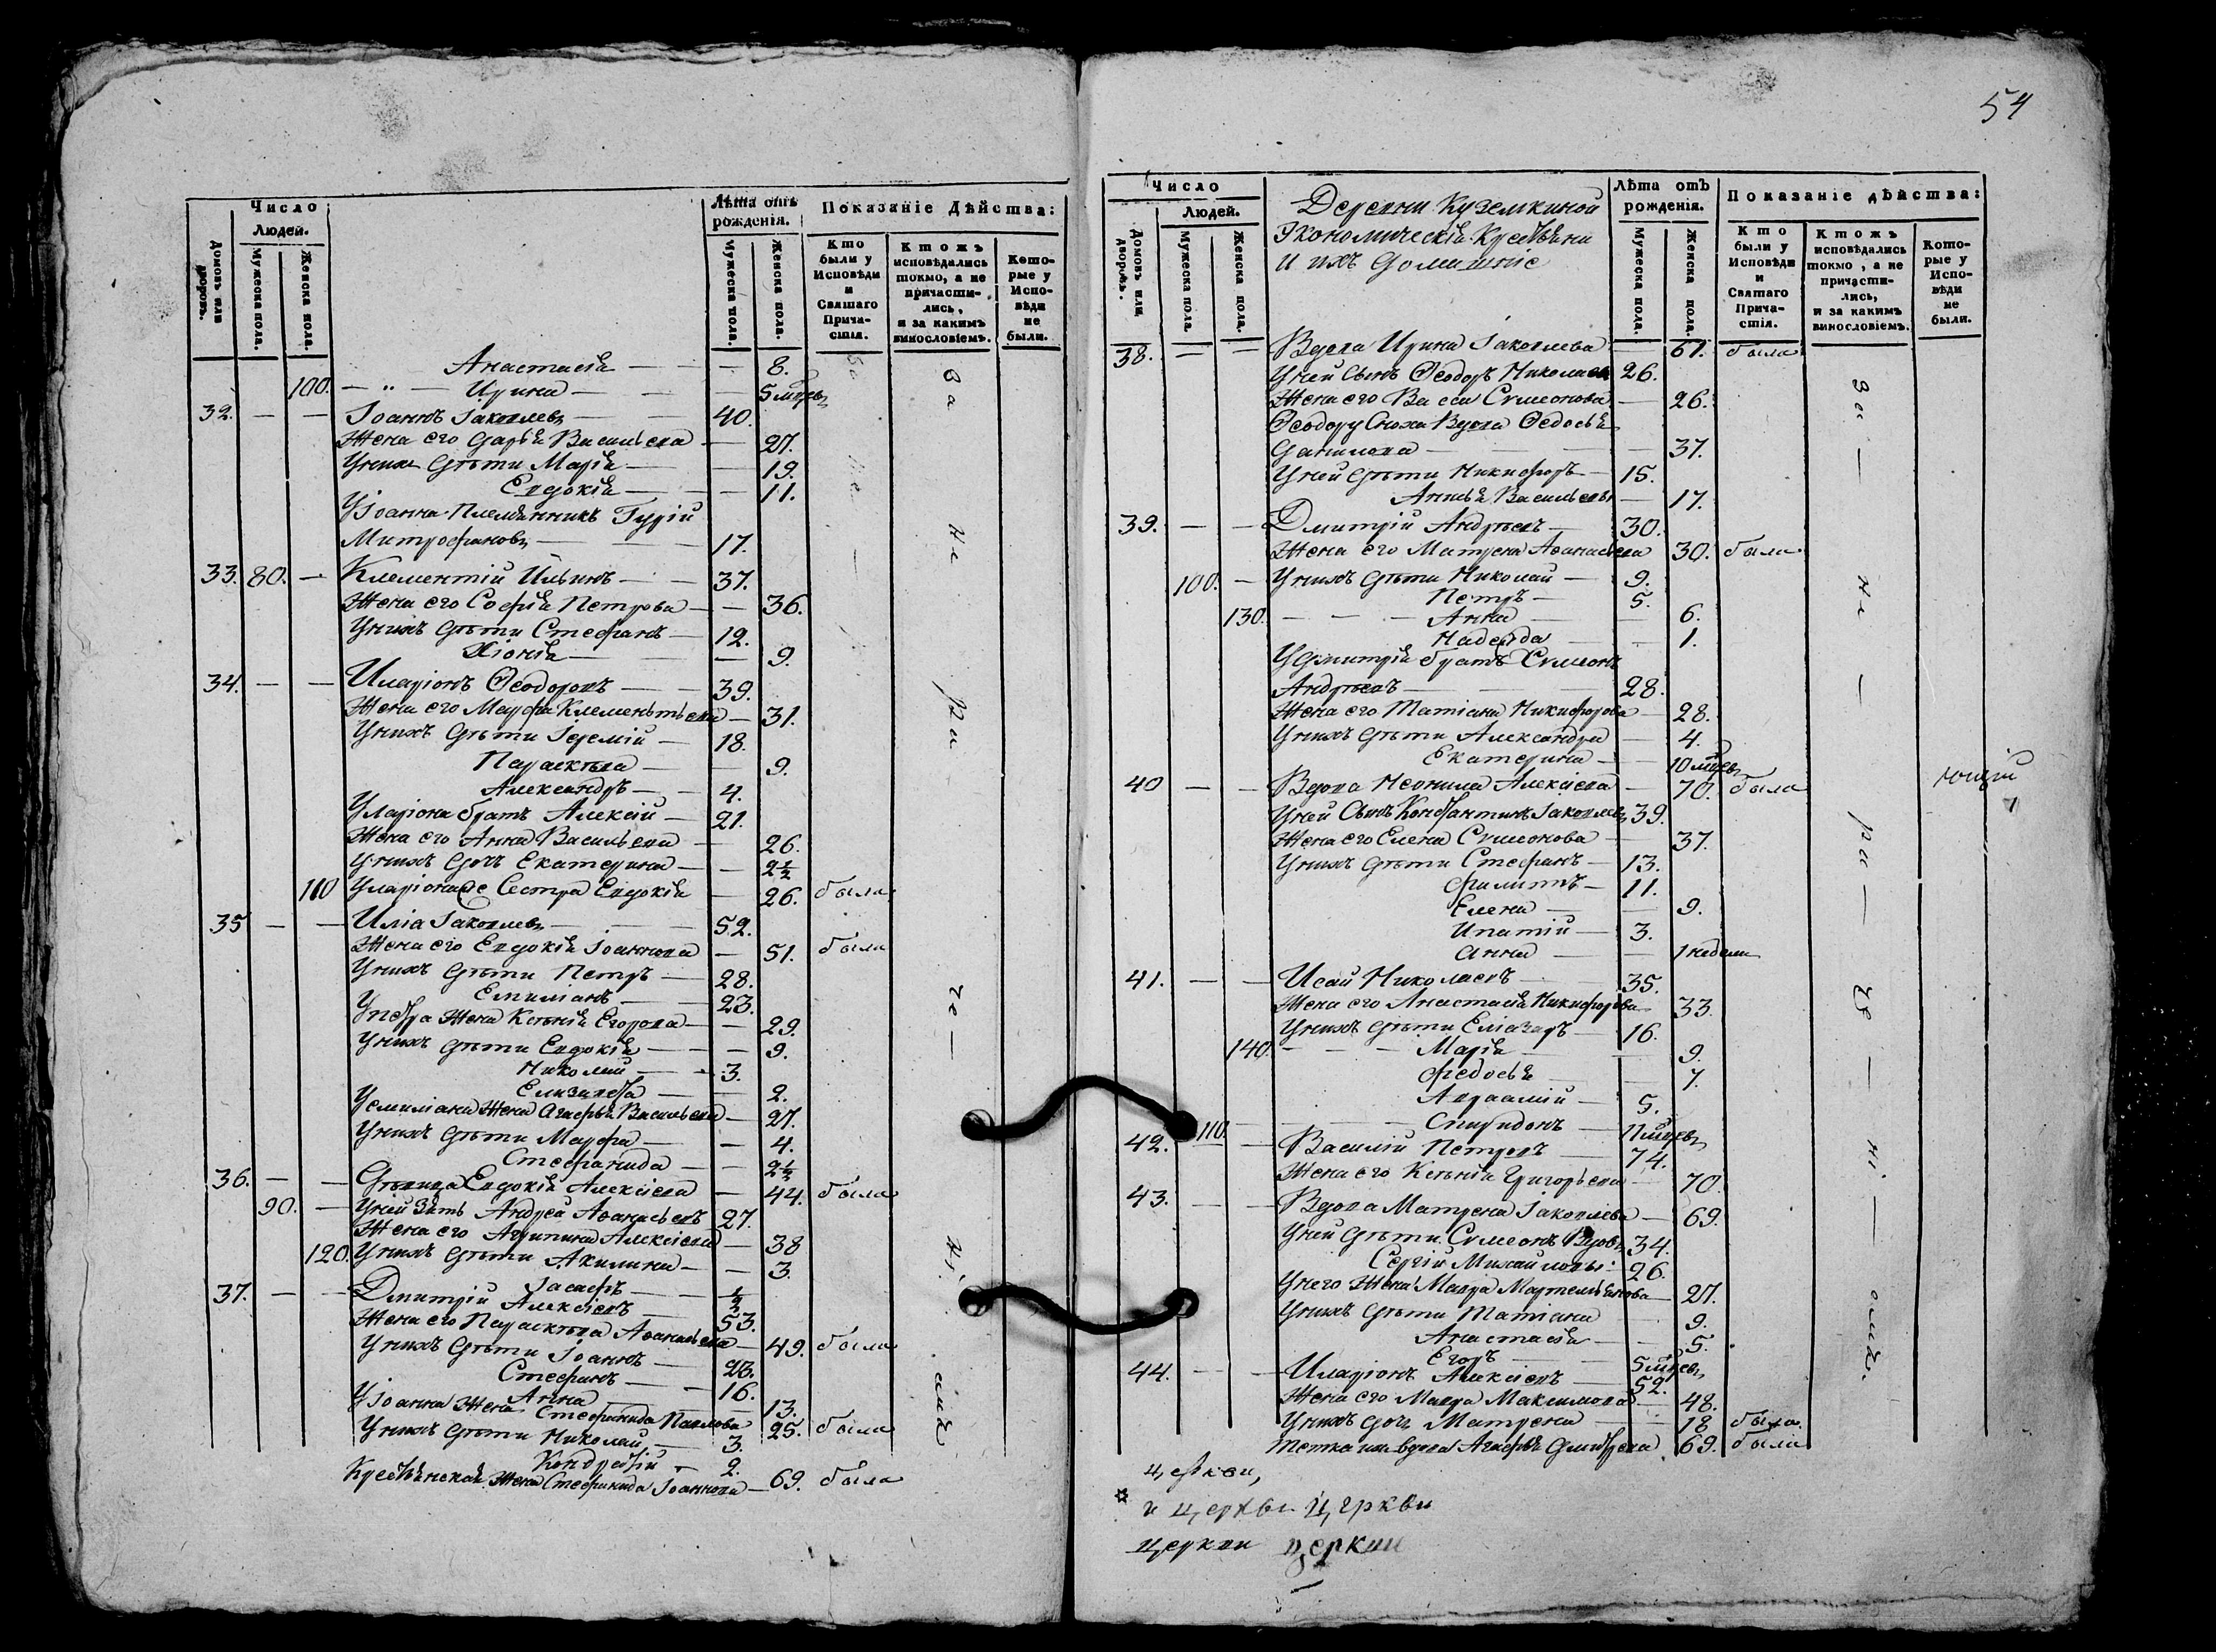 Число
Людей.
Домовъ или дворовъ.
Мужеска пола.
Женска пола.
Лѣта отъ рожденія.
Мужеска пола.
Женска пола.
Показаніе Дѣйства:
Кто были у Исповѣди и Святаго Прича-стія.
Ктожъ исповѣдались токмо, а не причасти-лись, и за какимъ винословіемъ.
Кото-рые у Испо-вѣди не были.
Анастасія — 8.
100. — " — Ирина — 5 мцевъ
32. — — Іоаннъ Іаковлевъ — 40.
Жена его Дарья Васильева — 27.
У нихъ дѣти Марія — 19.
Евдокія — 11.
У Іоанна Племянникъ Гурій
Митрофановъ — 17.
33. 80. — Климентій Ильинъ — 37.
Жена его Софія Петрова — 36.
У нихъ дѣти Стефанъ — 12.
Хіонія — 9.
34. — — Иларіонъ Ѳеодоровъ — 39.
Жена его Марфа Клементьева — 31.
У нихъ дѣти Іеремій — 18.
Параскева — 9.
Александръ — 4.
У Ларіона братъ Алексій — 21.
Жена его Анна Васильева — 26.
У нихъ дочь Екатерина — 2½
110 У Ларіона же Сестра Евдокія — 26. была
35 — — Илія Іаковлевъ — 52.
Жена его Евдокія Іоаннова — 51. была
У нихъ дѣти Петръ — 28.
Емиліанъ — 23.
У Петра Жена Ксенія Егорова — 29.
У нихъ дѣти Евдокія — 9.
Николай — 3.
Елизавета — 2.
У Емиліана Жена Агафья Васильева — 27.
У нихъ дѣти Марфа — 4.
Стефанида — 2½
36. — — Дѣвица Евдокія Алексіева — 44. была
90. — У ней Зять Андрей Аѳанасьевъ 27.
Жена его Агрипина Алексіева — 38
120. У нихъ дѣти Акилина — 3.
Іасафъ — ½
37. — — Дмитрій Алексіевъ — 53.
Жена его Параскева Аѳанасьева — 49. была
У нихъ дѣти Іоаннъ — 23.
Стефанъ — 16.
Анна — 13.
У Іоанна Жена Стефанида Павлова 25. была
У нихъ дѣти Николай — 3.
Кондратій — 2.
Крестьянская Жена Стефанида Іоаннова — 69. была
За
не
ра
че
ні
емъ
54
Число
Людей.
Домовъ или дворовъ.
Мужеска пола.
Женска пола.
Деревни Куземкиной
Экономическія Крестьяне
и ихъ домашніе
Лѣта отъ рожденія.
Мужеска пола.
Женска пола.
Показаніе дѣйства:
Кто были у Исповѣди и Святаго Прича-стія.
Ктожъ исповѣдались токмо, а не причасти-лись, и за какимъ винословіемъ.
Кото-рые у Испо-вѣди не были.
38. — — Вдова Ирина Іаковлева — 61. была
У ней Сынъ Ѳеодоръ Николаевъ 26.
Жена его Васса Симеонова — 26.
Ѳеодору Сноха Вдова Ѳедосья
Данилова — 37.
У ней дѣти Никифоръ — 15.
Анисья Васильевы — 17.
39. — — Дмитрій Андреевъ — 30.
Жена его Матрена Аѳанасьева 30. была
100. — У нихъ дѣти Николай — 9.
Петръ — 5.
130. — — — Анна — 6.
Надежда — 1.
У Дмитрія братъ Симеонъ
Андреевъ — 28.
Жена его Татіана Никифорова — 28.
У нихъ дѣти Александра — 4.
Екатерина — 10 мцевъ
40 — — Вдова Неонила Алексіева — 70. была
У ней Сынъ Константинъ Іаковлевъ 39.
Жена его Елена Симонова — 37.
У нихъ дѣти Стефанъ — 13.
Филиппъ — 11.
Елена — 9.
Ипатій — 3.
Анна — 1 недели
41. — — Исай Николаевъ — 35.
Жена его Анастасія Никифорова — 33.
У нихъ дѣти Еліазаръ — 16.
140. — — — Марія — 9.
Федосья — 7.
Авраамій — 5.
110. — Спиридонъ — 11 мцевъ
42. — Василій Петровъ — 74.
Жена его Ксенія Григорьева — 70.
43. — — Вдова Матрена Іаковлева — 69.
У ней дѣти Симеонъ Вдовъ 34.
Сергій Михайловы 26.
У него Жена Мавра Мартемьянова — 27.
У нихъ дѣти Татіана — 9.
Анастасія — 5.
Егоръ — 5 мцевъ
44. — — Иларіонъ Алексіевъ — 52.
Жена его Мавра Максимова — 48.
У нихъ дочь Матрена — 18 была
Тетка им вдова Агафья Дмитрева 69. была
За — не — ра — че — ні — емъ.
ющій
церкви,
и церкви церкви
церкви церкви